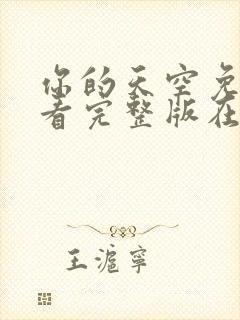 你的天空免
看完整版在
王滬寧